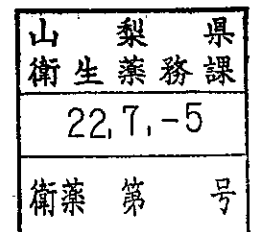 山梨県
衛生薬務課
22.7.-5
衛薬 第 号